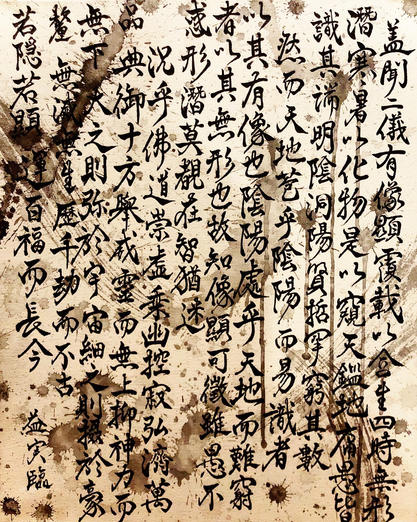 蓋聞二儀有像顯覆載以含生四時無形
潛寒暑以化物是以窺天鑑地庸愚皆
識其端明陰洞陽賢哲罕窮其數
然而天地苞乎陰陽而易識者
以其有像也陰陽處乎天地而難窮
者以其無形也故知像顯可徵雖愚不
惑形潛莫覩在智猶迷
況乎佛道崇虛乘幽控寂弘濟萬
品典御十方舉威靈而無上抑神力而
無下大之則彌於宇宙細之則攝於豪
釐無滅無生歷千劫而不古
若隱若顯運百福而長今
臨